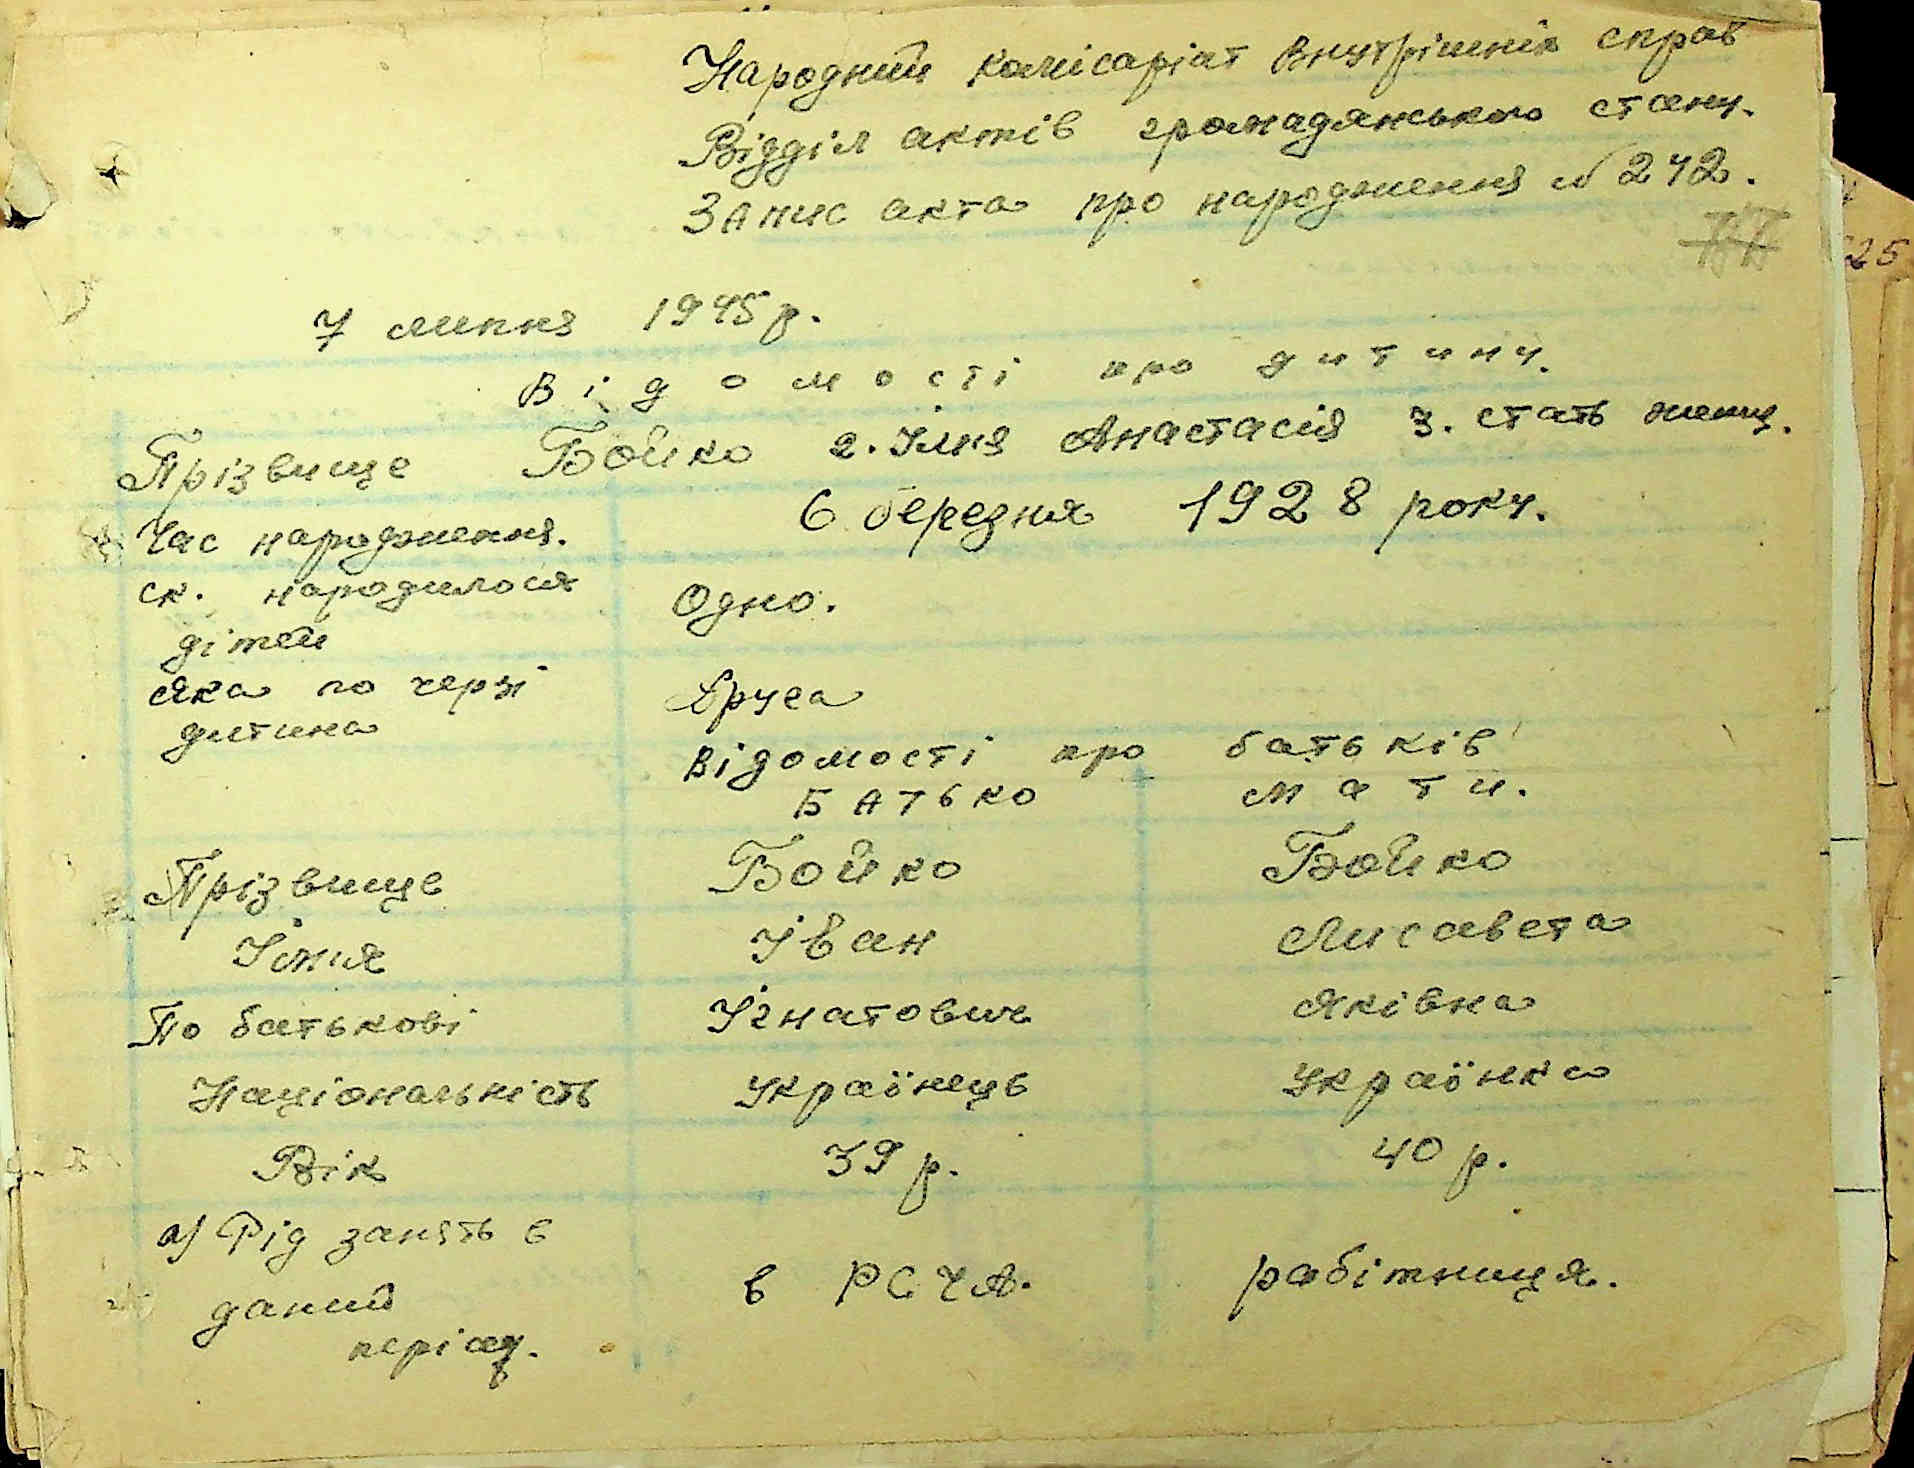 Народний комісаріат внутрішніх справ
Відділ актів громадянського стану.
Запис акта про народження № 242.
7 липня 1945 р.
Відомості про дитину.
Прізвище Бойко 2. Імя Анастасія 3. стать женщ.
Час народження. 6 березня 1928 року.
ск. народилося Одно.
дітей
Яка по черзі Друга
дитина
Відомості про батьків
Батько мати.
Прізвище Бойко Бойко
Імия Іван Лисавета
По батькові Ігнатович Яківна
Національність Українець Українка
Вік 39 р. 40 р.
а) Рід занять в
даний в РСЧА. робітниця.
період.
25